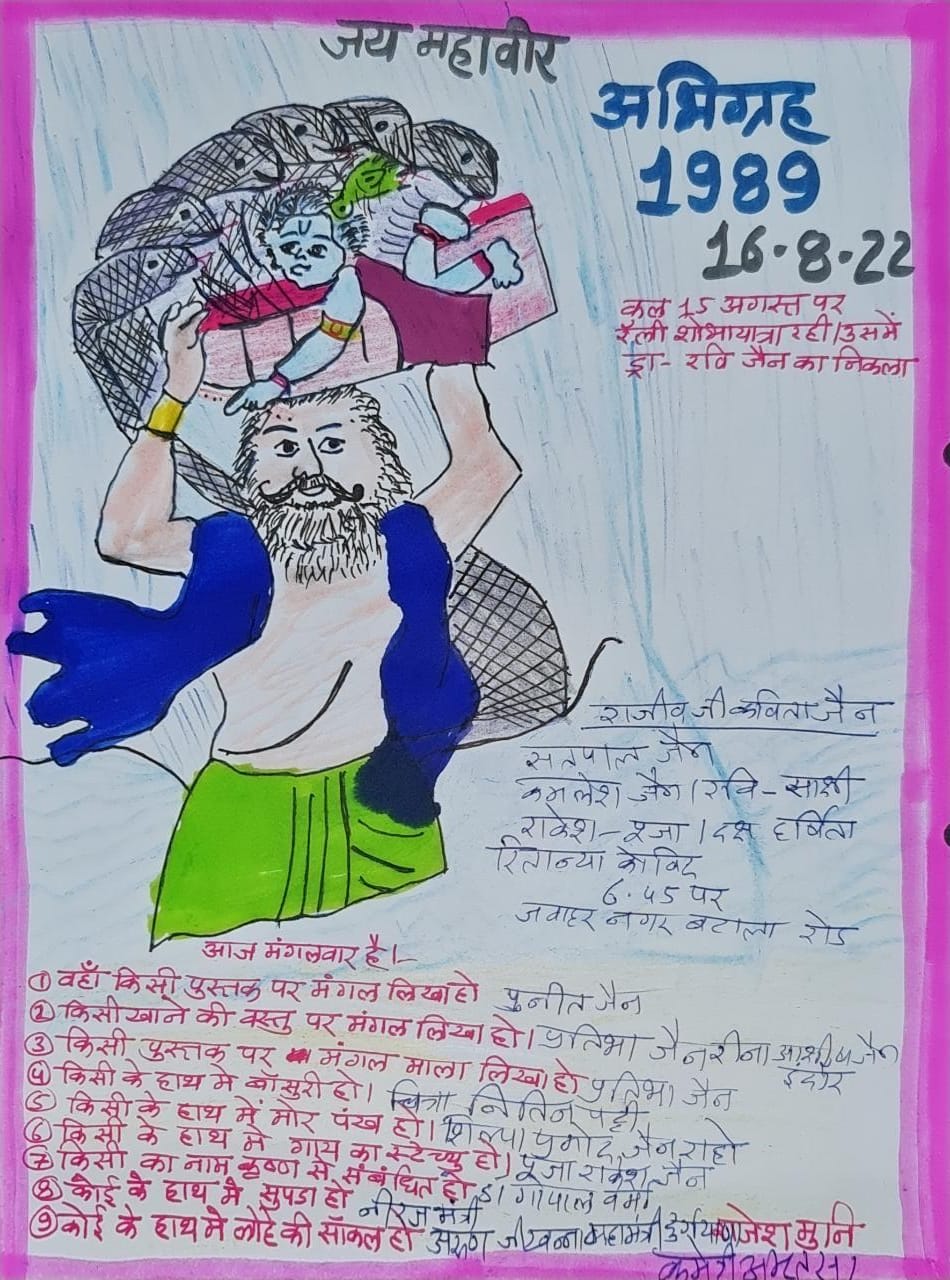 जय महावीर
अभिग्रह
1989
16.8.22
कल 15 अगस्त पर
रैली शोभायात्रा रही। उसमें
ड्रा- रवि जैन का निकला
राजीव जी कविता जैन
सतपाल जैन
कमलेश जैन। रवि - साक्षी
राकेश - पूजा। दक्ष हर्षिता
रितान्या कोविद
6.45 पर
जवाहर नगर बटाला रोड
आज मंगलवार है।-
① वहाँ किसी पुस्तक पर मंगल लिखा हो पुनीत जैन
② किसी खाने की वस्तु पर मंगल लिखा हो। प्रतिभा जैन रीना आशीष जैन इंदौर
③ किसी पुस्तक पर मंगल माला लिखा हो प्रतिभा जैन
④ किसी के हाथ मे बाँसुरी हो। नितिन
⑤ किसी के हाथ में मोर पंख हो। शिल्पा प्रमोद जैन राहो
⑥ किसी के हाथ मे गाय का स्टेच्यु हो। पूजा राकेश जैन
⑦ किसी का नाम कृष्ण से संबंधित हो डा गोपाल वर्मा
⑧ कोई के हाथ मे सुपडा हो नीरज मंत्री
⑨ कोई के हाथ मे लोहे की साँकल हो अरुण जी खन्ना महामंत्री राजेश मुनि
कमेटी अमृतसर